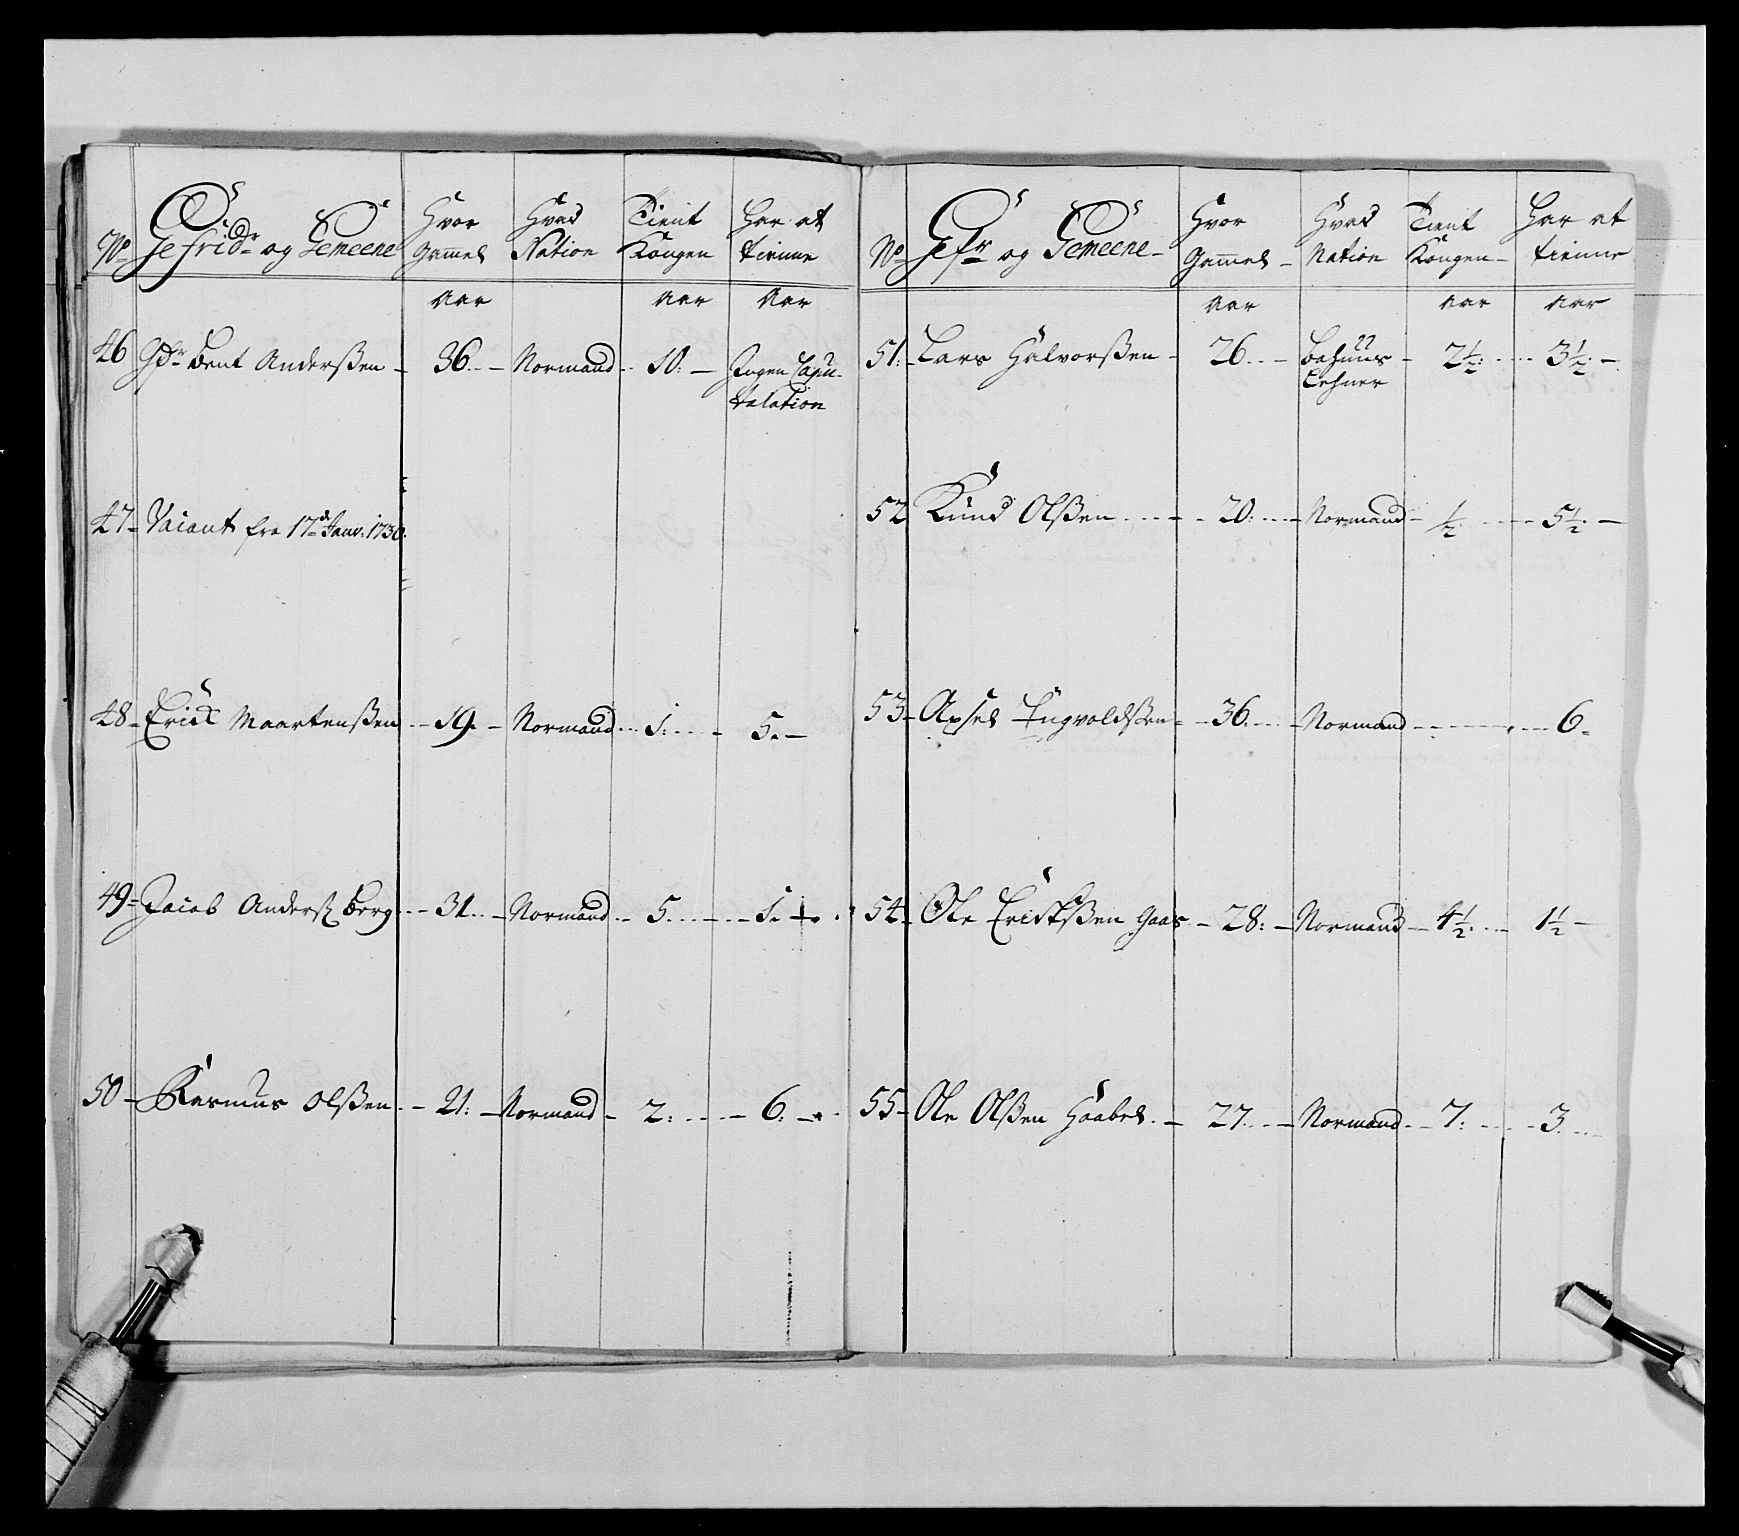 No Gefridr og Gemeene Hvor Gammel Hvad Nation Tient Kongen Har at tienne
Aar Aar Aar
46 Gfr Bent Anderßen - 36 - Normand 10: - Ingen Capu-
tulation
47 - Vacant fra 17de Janv. 1730.
48 - Erick Maartenßen - 19. - Normand 1: - 5. -
49 - Jacob Anderß Berg - 31 - Normand 5. - 1. -
50 - Rasmus Olßen - 21: - Normand - 2: - 6. -
No Gefr og Gemeene - Hvor Gammel - Hvad Nation Tient Kongen - Har at tienne
Aar Aar Aar
51. Lars Halvorßen - 26 - Bahuus - 2 1/2: - 3 1/2. -
Lehner
52 Knud Olßen - 20: - Normand - 1/2 - 5 1/2. -
53 - Axsel Ingvoldßen - 36. - Normand - 6.
54 - Ole Erickßen Gaas - 28: - Normand - 4 1/2. - 1 1/2 -
55 - Ole Olßen Haabel - 27. - Normand - 7. - 3.